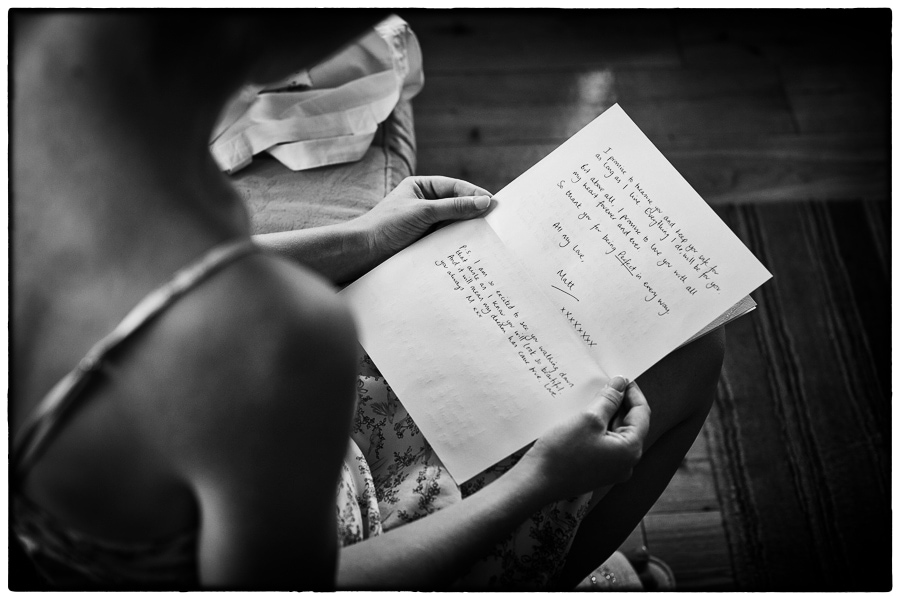 I promise to treasure you and keep you safe for
as long as I live. Everything I do, will be for you
but above all, I promise to love you with all
my heart forever and ever.
So thank you for being Perfect in every way.
All my love,
Matt
xxxxxxxx
P.S. I am so excited to see you walking down
that aisle as I know you will look so beautiful.
And it will mean my dream has come true. Love
you always M xxx